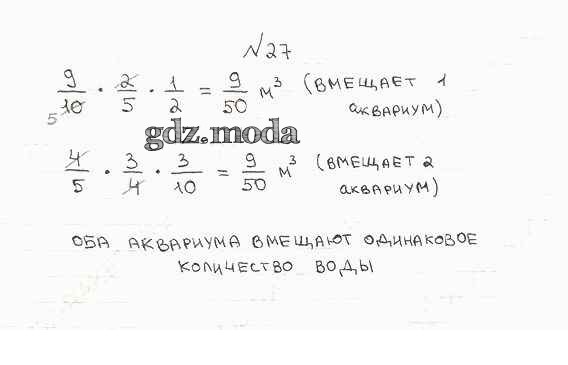 №27
9/10 · 2/5 · 1/2 = 9/50 м³ (ВМЕЩАЕТ 1
5
АКВАРИУМ)
gdz.moda
4/5 · 3/4 · 3/10 = 9/50 м³ (ВМЕЩАЕТ 2
АКВАРИУМ)
ОБА АКВАРИУМА ВМЕЩАЮТ ОДИНАКОВОЕ
КОЛИЧЕСТВО ВОДЫ